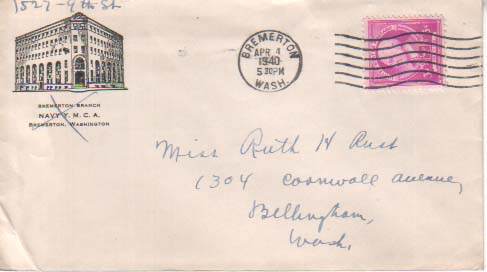 1527 - 9th St
BREMERTON BRANCH
NAVY Y. M. C. A.
BREMERTON, WASHINGTON
BREMERTON
APR 4
1940
5 30PM
WASH.
Miss Ruth H Rust
1304 Cornwall avenue,
Bellingham,
Wash.